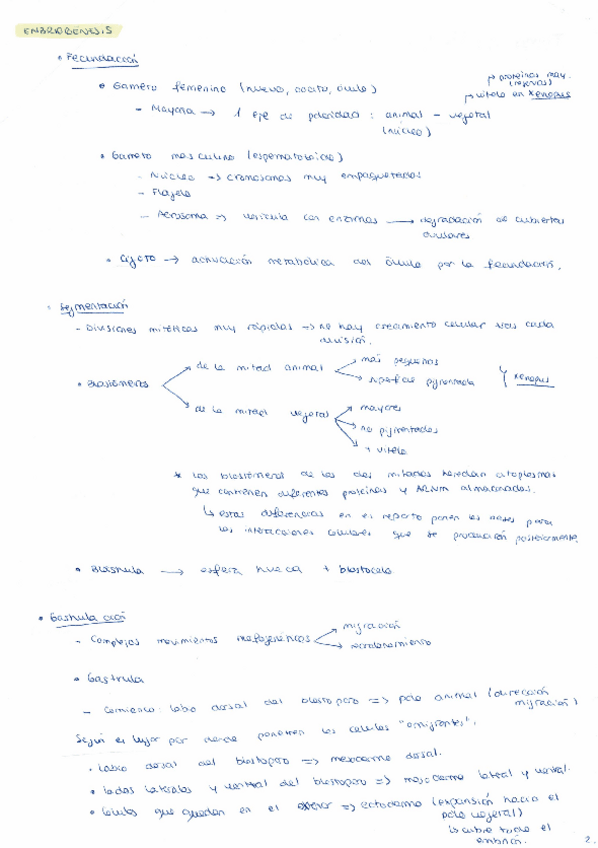 EMBRIOGENESIS
• Fecundación
• Gameto femenino (huevo, oocito, óvulo)
↳ proteínas (reservas)
↳ vitelo en Xenopus
- Mayoría → 1 eje de polaridad : animal - vegetal
(núcleo)
• Gameto masculino (espermatozoide)
- Núcleo => cromosomas muy empaquetados
- Flagelo
- Acrosoma => vesícula con enzimas → degradación de cubiertas
ovulares
• Cigoto → activación metabólica del óvulo por la fecundación.
• Segmentación
- Divisiones mitóticas muy rápidas → no hay crecimiento celular tras cada
división.
• Blastómeros
de la mitad animal
más pequeños
superficie pigmentada
Xenopus
de la mitad vegetal
mayores
no pigmentados
y vitelo
* Los blastómeros de las dos mitades heredan citoplasmas
que contienen diferentes proteínas y ARNm almacenados.
↳ estas diferencias en el reparto ponen las bases para
las interacciones celulares que se producirán posteriormente.
• Blástula → esfera hueca + blastocele
• Gastrulación
- Complejos movimientos morfogenéticos
migración
reordenamiento
• Gástrula
- Comienzo: labio dorsal del blastoporo => polo animal (dirección
migración)
Según el lugar por donde penetren las células "emigrantes".
• Labio dorsal del blastoporo => mesodermo dorsal.
• Lados laterales y ventral del blastoporo => mesodermo lateral y ventral.
• Células que quedan en el exterior => ectodermo (expansión hacia el
polo vegetal)
↳ cubre todo el
embrión.
2.